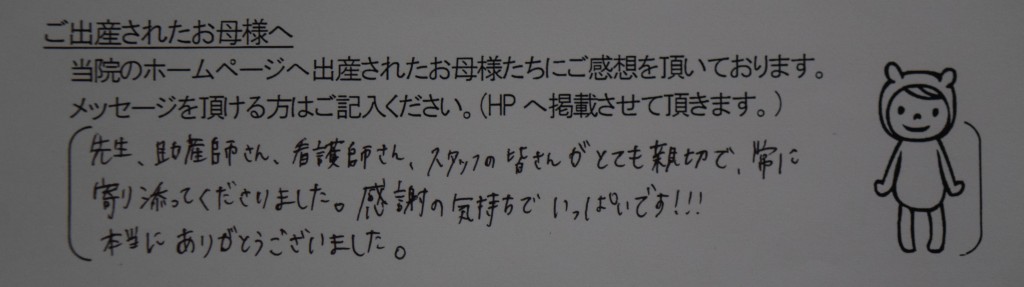 ご出産されたお母様へ
当院のホームページへ出産されたお母様たちにご感想を頂いております。
メッセージを頂ける方はご記入ください。（HPへ掲載させて頂きます。）
先生、助産師さん、看護師さん、スタッフの皆さんがとても親切で、常に
寄り添ってくださりました。感謝の気持ちでいっぱいです!!!
本当にありがとうございました。